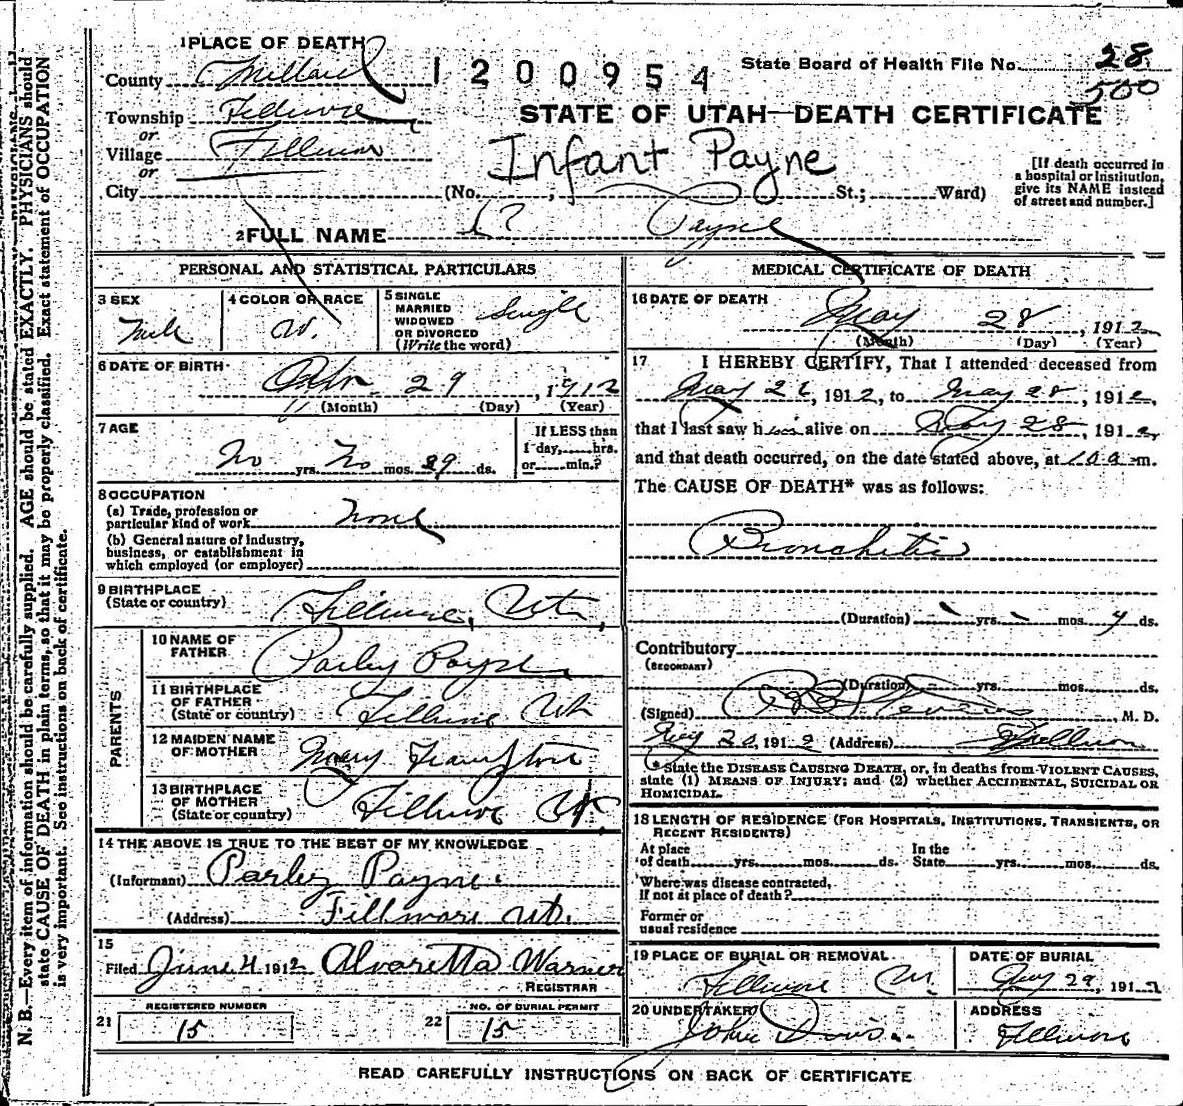 1 PLACE OF DEATH
County Millard
1200954
State Board of Health File No. 28
500
Township Fillmore
STATE OF UTAH—DEATH CERTIFICATE
or
Village Fillmore
or
Infant Payne
City (No. , St.; Ward)
[If death occurred in a hospital or institution, give its NAME instead of street and number.]
2 FULL NAME Payne
PERSONAL AND STATISTICAL PARTICULARS
3 SEX
Male
4 COLOR OR RACE
W.
5 SINGLE
MARRIED
WIDOWED
OR DIVORCED
(Write the word)
Single
6 DATE OF BIRTH
29, 1912
(Month) (Day) (Year)
7 AGE
No yrs. No mos. 29 ds.
If LESS than
1 day,.....hrs.
or.....min.?
8 OCCUPATION
(a) Trade, profession or
particular kind of work None
(b) General nature of industry,
business, or establishment in
which employed (or employer)
9 BIRTHPLACE
(State or country) Fillmore, Utn,
PARENTS
10 NAME OF
FATHER Parley Payne
11 BIRTHPLACE
OF FATHER
(State or country) Fillmore Utn
12 MAIDEN NAME
OF MOTHER Mary Frampton
13 BIRTHPLACE
OF MOTHER
(State or country) Fillmore Ut
14 THE ABOVE IS TRUE TO THE BEST OF MY KNOWLEDGE
(Informant) Parley Payne.
(Address) Fillmore Ut.
15
Filed June 4 1912 Alvaretta Warner
REGISTRAR
REGISTERED NUMBER
21 15
NO. OF BURIAL PERMIT
22 15
MEDICAL CERTIFICATE OF DEATH
16 DATE OF DEATH
May 28, 1912
(Month) (Day) (Year)
17 I HEREBY CERTIFY, That I attended deceased from
May 26, 1912, to May 28, 1912,
that I last saw him alive on May 28, 1912,
and that death occurred, on the date stated above, at m.
The CAUSE OF DEATH* was as follows:
Bronchitis
(Duration) yrs. mos. ds.
Contributory
(SECONDARY)
(Duration) yrs. mos. ds.
(Signed) Stevens, M. D.
1912 (Address) Fillmore
*State the DISEASE CAUSING DEATH, or, in deaths from VIOLENT CAUSES,
state (1) MEANS OF INJURY; and (2) whether ACCIDENTAL, SUICIDAL OR
HOMICIDAL.
18 LENGTH OF RESIDENCE (FOR HOSPITALS, INSTITUTIONS, TRANSIENTS, OR
RECENT RESIDENTS)
At place In the
of death yrs. mos. ds. State yrs. mos. ds.
Where was disease contracted,
If not at place of death?
Former or
usual residence
19 PLACE OF BURIAL OR REMOVAL
Fillmore Ut.
DATE OF BURIAL
May 29, 1912
20 UNDERTAKER
John Davis.
ADDRESS
Fillmore
READ CAREFULLY INSTRUCTIONS ON BACK OF CERTIFICATE
N. B.—Every item of information should be carefully supplied. AGE should be stated EXACTLY. PHYSICIANS should
state CAUSE OF DEATH in plain terms, so that it may be properly classified. Exact statement of OCCUPATION
is very important. See instructions on back of certificate.